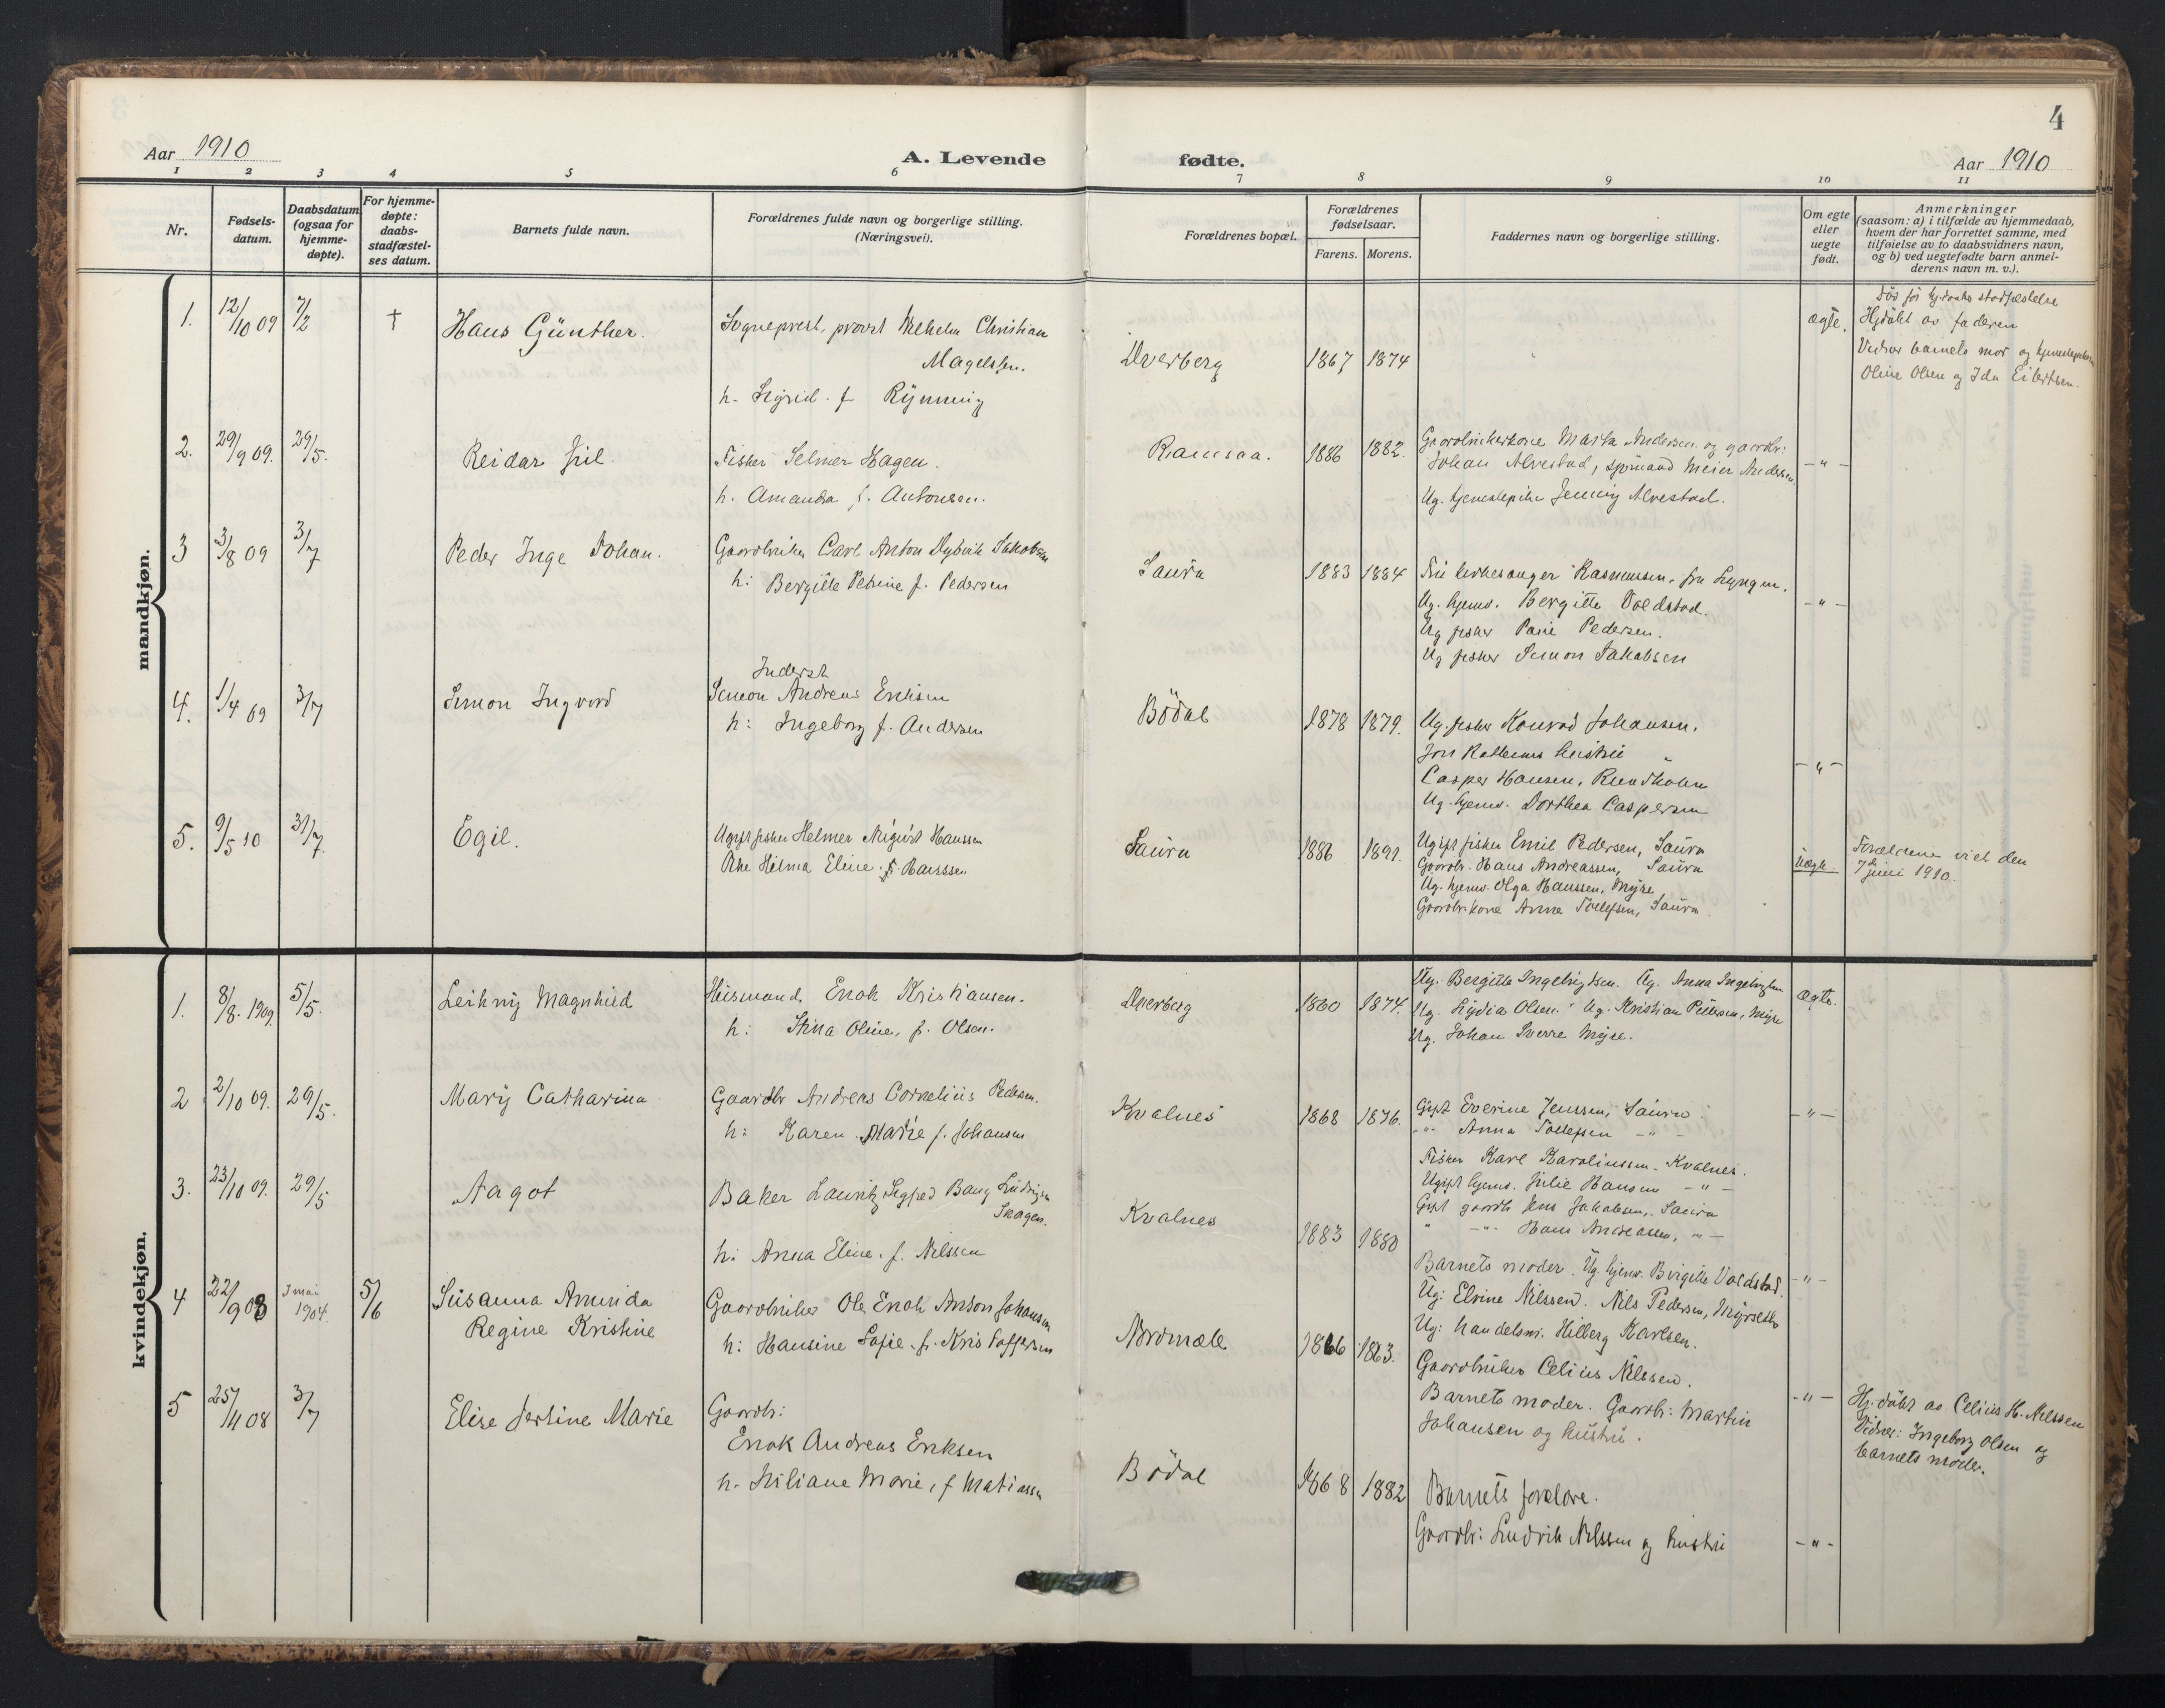 4
Aar 1910
A. Levende
fødte.
Aar 1910
1 2 3 4 5 6 7 8 9 10 11
Nr.
Fødsels-
datum.
Daabsdatum
(ogsaa for
hjemme-
døpte).
For hjemme-
døpte:
daabs-
stadfæstel-
ses datum.
Barnets fulde navn.
Forældrenes fulde navn og borgerlige stilling.
(Næringsvei).
Forældrenes bopæl.
Forældrenes
fødselsaar.
Farens. Morens.
Faddernes navn og borgerlige stilling.
Om egte
eller
uegte
født.
Anmerkninger
(saasom: a) i tilfælde av hjemmedaab,
hvem der har forrettet samme, med
tilføielse av to daabsvidners navn,
og b) ved uegtefødte barn anmel-
derens navn m. v.).
mandkjøn.
1. 12/10 09 7/2 †
Hans Günther.
Sogneprest, provst Wilhelm Christian
Magelssen.
h. Sigrid f. Rynning
Dverberg
1867 1874
ægte.
Død før hjdaabs stadfæstelse
Hjdøbt av faderen
Vidner barnets mor og
Oline Olsen og Ida Eilertsen.
2. 29/9 09. 29/5.
Reidar Jul
Fisker Selmer Hagen.
h. Amanda f. Antonsen.
Ramsaa.
1886 1882.
Gaardbrukerkone Marta Andersen og gaardbr:
Johan Alvestad, sjømand Meier Andersen
Ug. Jenny Alvestad.
- " -
3 3/8 09 3/7
Peder Inge Johan.
Gaardbruker Carl Anton Dybvik Jakobsen
h: Bergitte Petrine f. Pedersen
Saura
1883 1884
Fru kirkesanger Rasmussen, fra Lyngen.
Ug. hjemv. Bergitte Voldstad.
Ug fisker Pedersen.
Ug fisker Simon Jakobsen
- " -
4. 1/4 09 3/7
Simon Ingvard
Inderst
Simon Andreas Eriksen
h: Ingeborg f. Andersen
Bödal
1878 1879.
Ug. fisker Konrad Johansen.
hustru "
Casper Hansen,
Ug. hjemv. Dorthea Caspersen
- " -
5. 9/5 10 31/7
Egil.
Ugift fisker Helmer August Hanssen
Pike Hilma Eline f. Hanssen
Saura
1886 1891.
Ugift fisker Emil Pedersen, Saura
Gaardbr. Hans Andreassen, Saura
Ug. hjemv. Olga Hanssen, Myre
Gaardbr.kone Anna Tollefsen, Saura.
Uægte.
Forældrene viet den
7de juni 1910.
kvindekjøn.
1. 8/8. 1909. 5/5.
Leikny Magnhild
Husmand Enok Kristiansen.
h: Stina Oline, f. Olsen.
Dverberg
1860 1874.
Ug. Bergitte Ingebrigtsen. Ug. Anna Ingebrigtsen
Ug. Lydia Olsen. Ug. Kristian Pettersen, Myre
Ug. Johan Sverre Myre.
ægte.
2 2/10 09. 29/5.
Mary Catharina
Gaardbr Andreas Cornelius Pedersen.
h: Karen Marie f. Johansen
Kvalnes
1868 1876.
Gift Everine Jenssen, Saura
-"- Anna Tollefsen - " -
Fisker Karl Karolinssen. Kvalnes.
Ugift hjemv. Julie Hansen - " -
- " -
3. 23/10 09. 29/5
Aagot
Baker Lauritz Sigfred Bang Ludvigsen
Skagen.
h: Anna Eline. f. Nilssen
Kvalnes
1883 1880
Gift gaardb Jens Jakobsen, Saura
" -"- Hans Andreassen, " -
Barnets moder. Ug. hjemv. Birgitte Voldstad.
Ug: Elvine Nilssen. Nils Pedersen,
Ug: handelsm. Hilberg Karlsen.
- " -
4 22/9 08 3 mai 1904. 5/6
Susanna Amunda
Regine Kristine
Gaardbruker Ole Enok Anton Johansen
h: Hansine Sofie f. Kristoffersen
Nordmæle
1866 1863.
Gaardbruker Celius Nilssen.
Barnets moder. Gaardbr: Martin
Johansen og hustru.
- " -
Hj. døbt av Celius H. Nilssen
Vidner: Ingeborg Olsen og
barnets moder.
5 25/11 08 3/7
Elise Jertine Marie
Gaardbr:
Enok Andreas Eriksen
h. Juliane Marie, f Matiassen
Bödal
1868 1882
Barnets forældre.
Gaardbr: Ludvik Nilssen og hustru
- " -